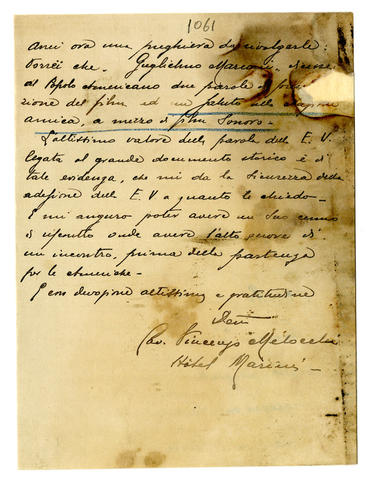 1061
Avrei ora una preghiera da rivolgerle:
Vorrei che Guglielmo Marconi dicesse
al Popolo Americano due parole di
zione del film ed un saluto alla Nazione
amica, a mezzo di film Sonoro -
L'altissimo valore della parola dell'E. V.
legata al grande documento storico è di
tale evidenza, che mi da la sicurezza della
adesione dell'E. V. a quanto le chiedo -
E mi auguro poter avere un Suo cenno
di riscontro onde avere l'alto onore di
un incontro prima della partenza
per le Americhe -
Con devozione altissima e gratitudine
Cav. Vincenzo Melocchi
Hôtel Marini -